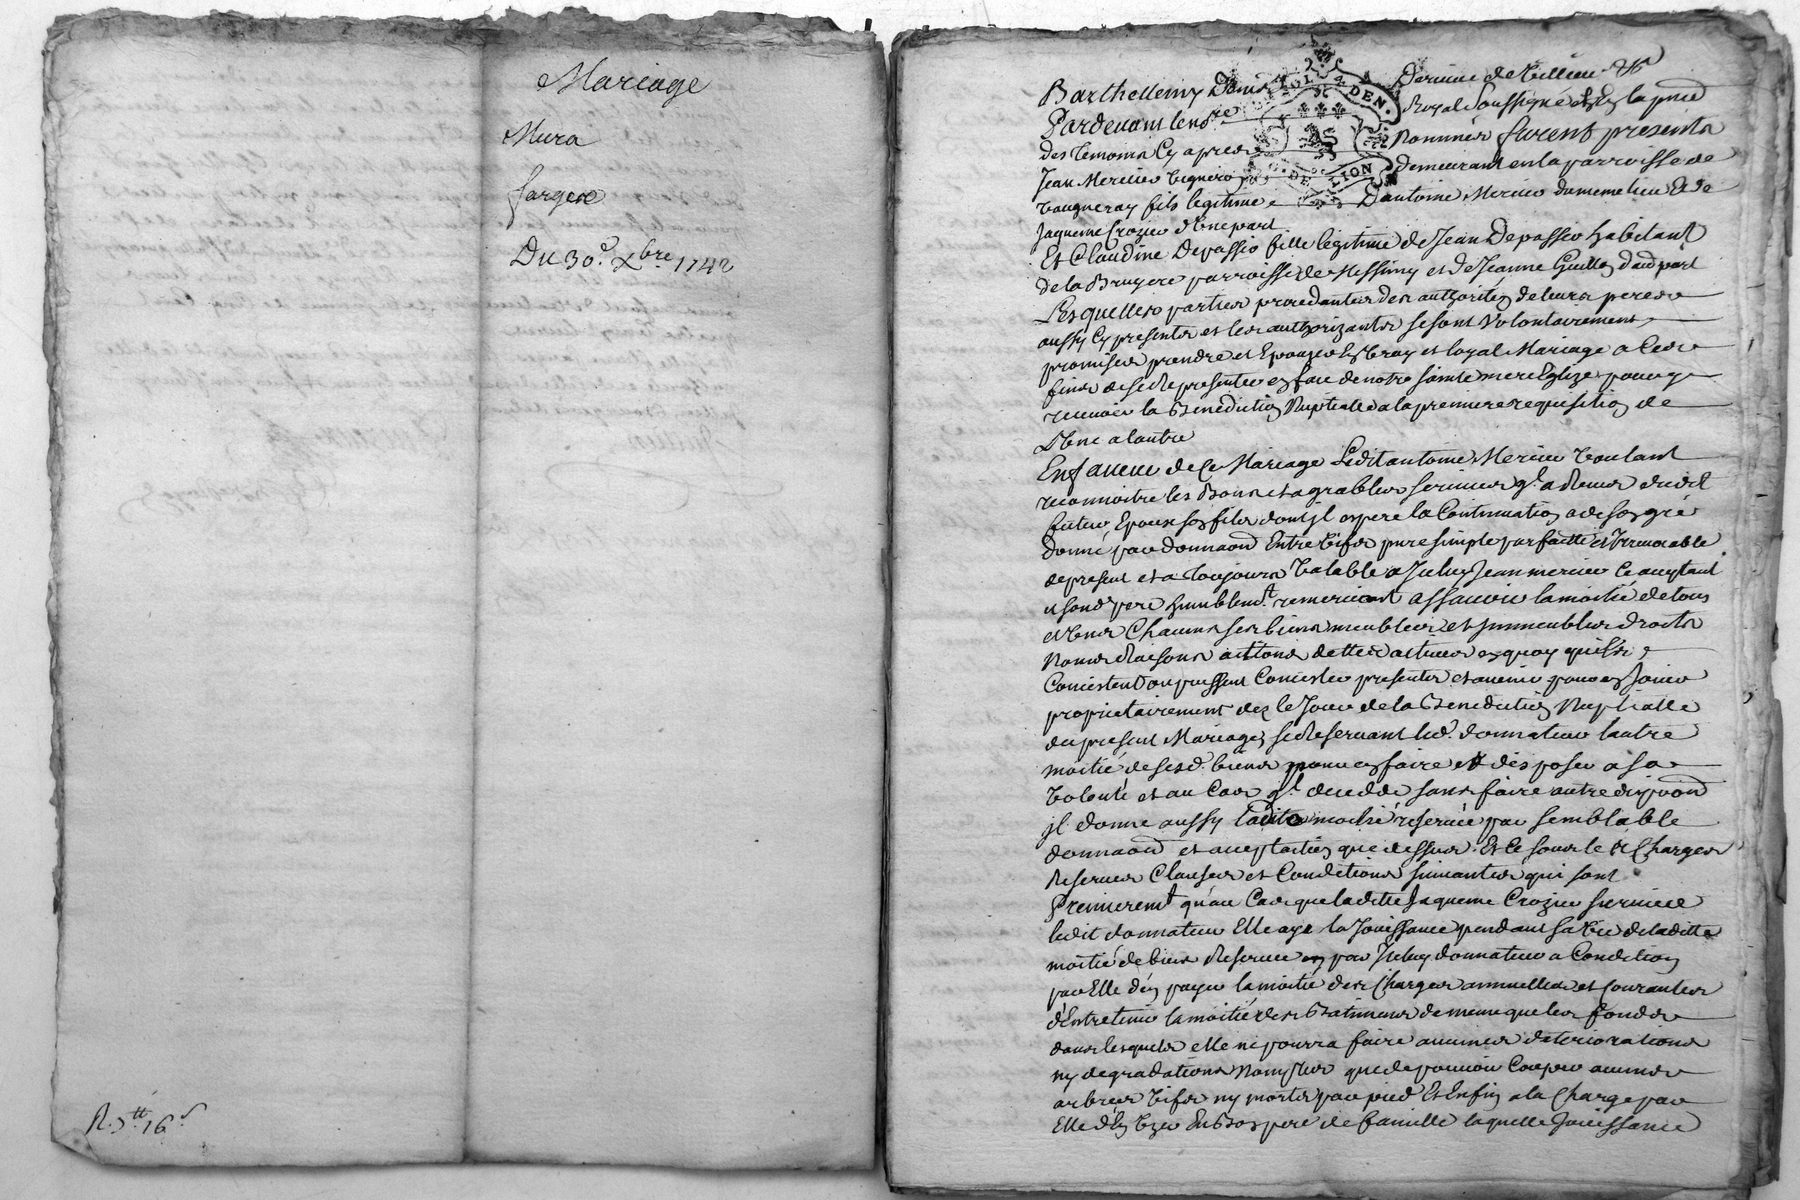 Mariage
Mura
farges
Du 30e Xbre 1742
R. 3tt 16s
GNL. DEN.
DE LION
Barthellemy Denis Derieu de Villieu
Pardevant le nore Royal soussigné et en la pnce
des temoins cy apres Nommés furent presents
Jean Mercier vigneron demeurant en la parroisse de
vaugneray fils legitime D'antoine Mercier du meme lieu et de
Jaqueme Crozier d'Une part
Et Claudine Depassio fille legitime de Jean Depassio habitant
de la Bruyere parroisse de Messimy et de Jeanne Guillo d'aud part
Lesquelles parties procedantes des authorités de leurs peres
aussy cy presents et les authorizants se sont Volontairement
promises prendre et Epouser En vray et loyal Mariage a Ces
fins de se Representer en face de notre sainte mere Eglize pour y
recevoir la Benediction Nuptialle a la premiere requisition de
L'Une a lautre
En faveur de Ce Mariage Ledit antoine Mercier voulant
reconnoitre les Bons et agreables services ql a Receus dudit
futeur Epoux son fils dont jl espere la Continuation a de son gré
donné par donnaon Entre Vifs pure simple parfaitte et Irrevocable
de present et a toujours Valable a Iceluy Jean mercier Ce aceptant
et sond pere humblemt remerciant assavoir la moitié de tous
et Uns Chacuns ses biens meubles et Immeubles droits
Noms Raisons actions dettes actives en quoy qu'ils
Concistent ou puissent Concister presents et avenir pour en Jouir
proprietairement dez le Jour de la Benediction Nuptialle
du present Mariage, se Reservant led. donnateur lautre
moitié de sesd. biens pour en faire et disposer a sa
Volonté et au Cas ql decede sans faire autre dispoon
jl donne aussy laditte moitié reservée par semblable
donnaon et aceptation que dessus. Et Ce sous les Charges
Reserves Clauses et Conditions suivantes qui sont
Premieremt qu'au Cas que laditte Jaqueme Crozier survive
ledit donnateur Elle aye la Jouissance pendant sa vie de laditte
moitié de biens Reservée par Iceluy donnateur a Condition
par Elle d'en payer la moitié des Charges annuelles et Courantes
d'Entretenir la moitié des Batiments de meme que les fonds
dans lesquels elle ne pourra faire aucunes deteriorations
ny degradations Non plus que de pouvoir Couper aucuns
arbres vifs ny morts par pied Et Enfin a la Charge par
Elle d'En Uzer En Bon pere de famille laquelle Jouissance